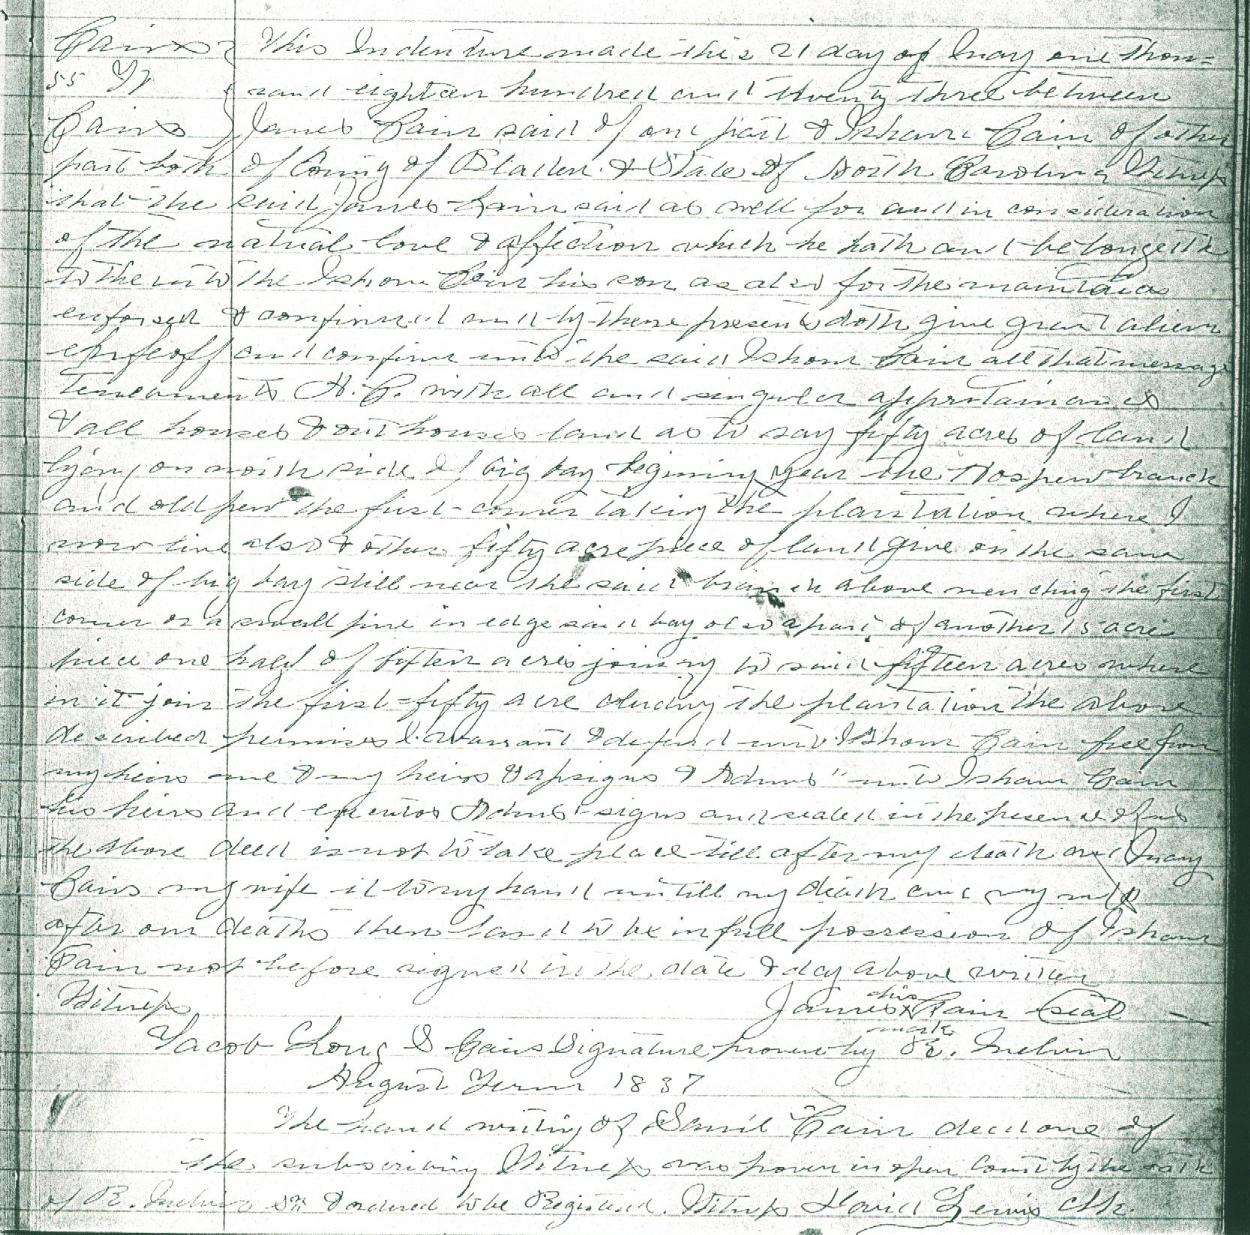 Cains
55 Yr
Cains
This Indenture made this 21 day of May one thou=
sand eighteen hundred and twenty three between
James Cain said of one part & Isham Cain of other
part both of County of Bladen & State of North Carolina Witness
that the said James Cain said as well for and in consideration
of the natural love & affection which he hath and belongeth
to the unto the Isham Cain his son as also for the
& confirmed and by these presents doth give grant alien
enfeoff and confirm unto the said Isham Cain all that
tenements H. C. with all and singular
& all houses & out houses land as to say fifty acres of land
lying on north side of big bay begining near the branch
and old the first corner taking the plantation where I
now live also & other fifty acre piece of land give on the same
side of big bay still near the said branch above the first
corner is a small pine in edge said bay also a part of another 15 acre
piece one half of fifteen acres joining to said fifteen acres where
in it joins the first fifty acre cluding the plantation the above
described I warrant & defend unto Isham Cain free from
my heirs me & my heirs & assigns & Admrs unto Isham Cain
his heirs and Admrs signs and sealed in the presence of us
the above deed is not to take place till after my death and Mary
Cains my wife it to my hand untill my death and my wife
after our deaths then land to be in full possession of Isham
Cain not before signed in the date & day above written
Witness James his X mark Cain Seal
Jacob Long D Cains Signature proven by R. Melvin
August Term 1837
The hand writing of Daniel Cain decd one of
the subscribing Witness was proven in open Court by the oath
of R. Melvin Sr & ordered to be Registered. Witness David Lewis Clk.